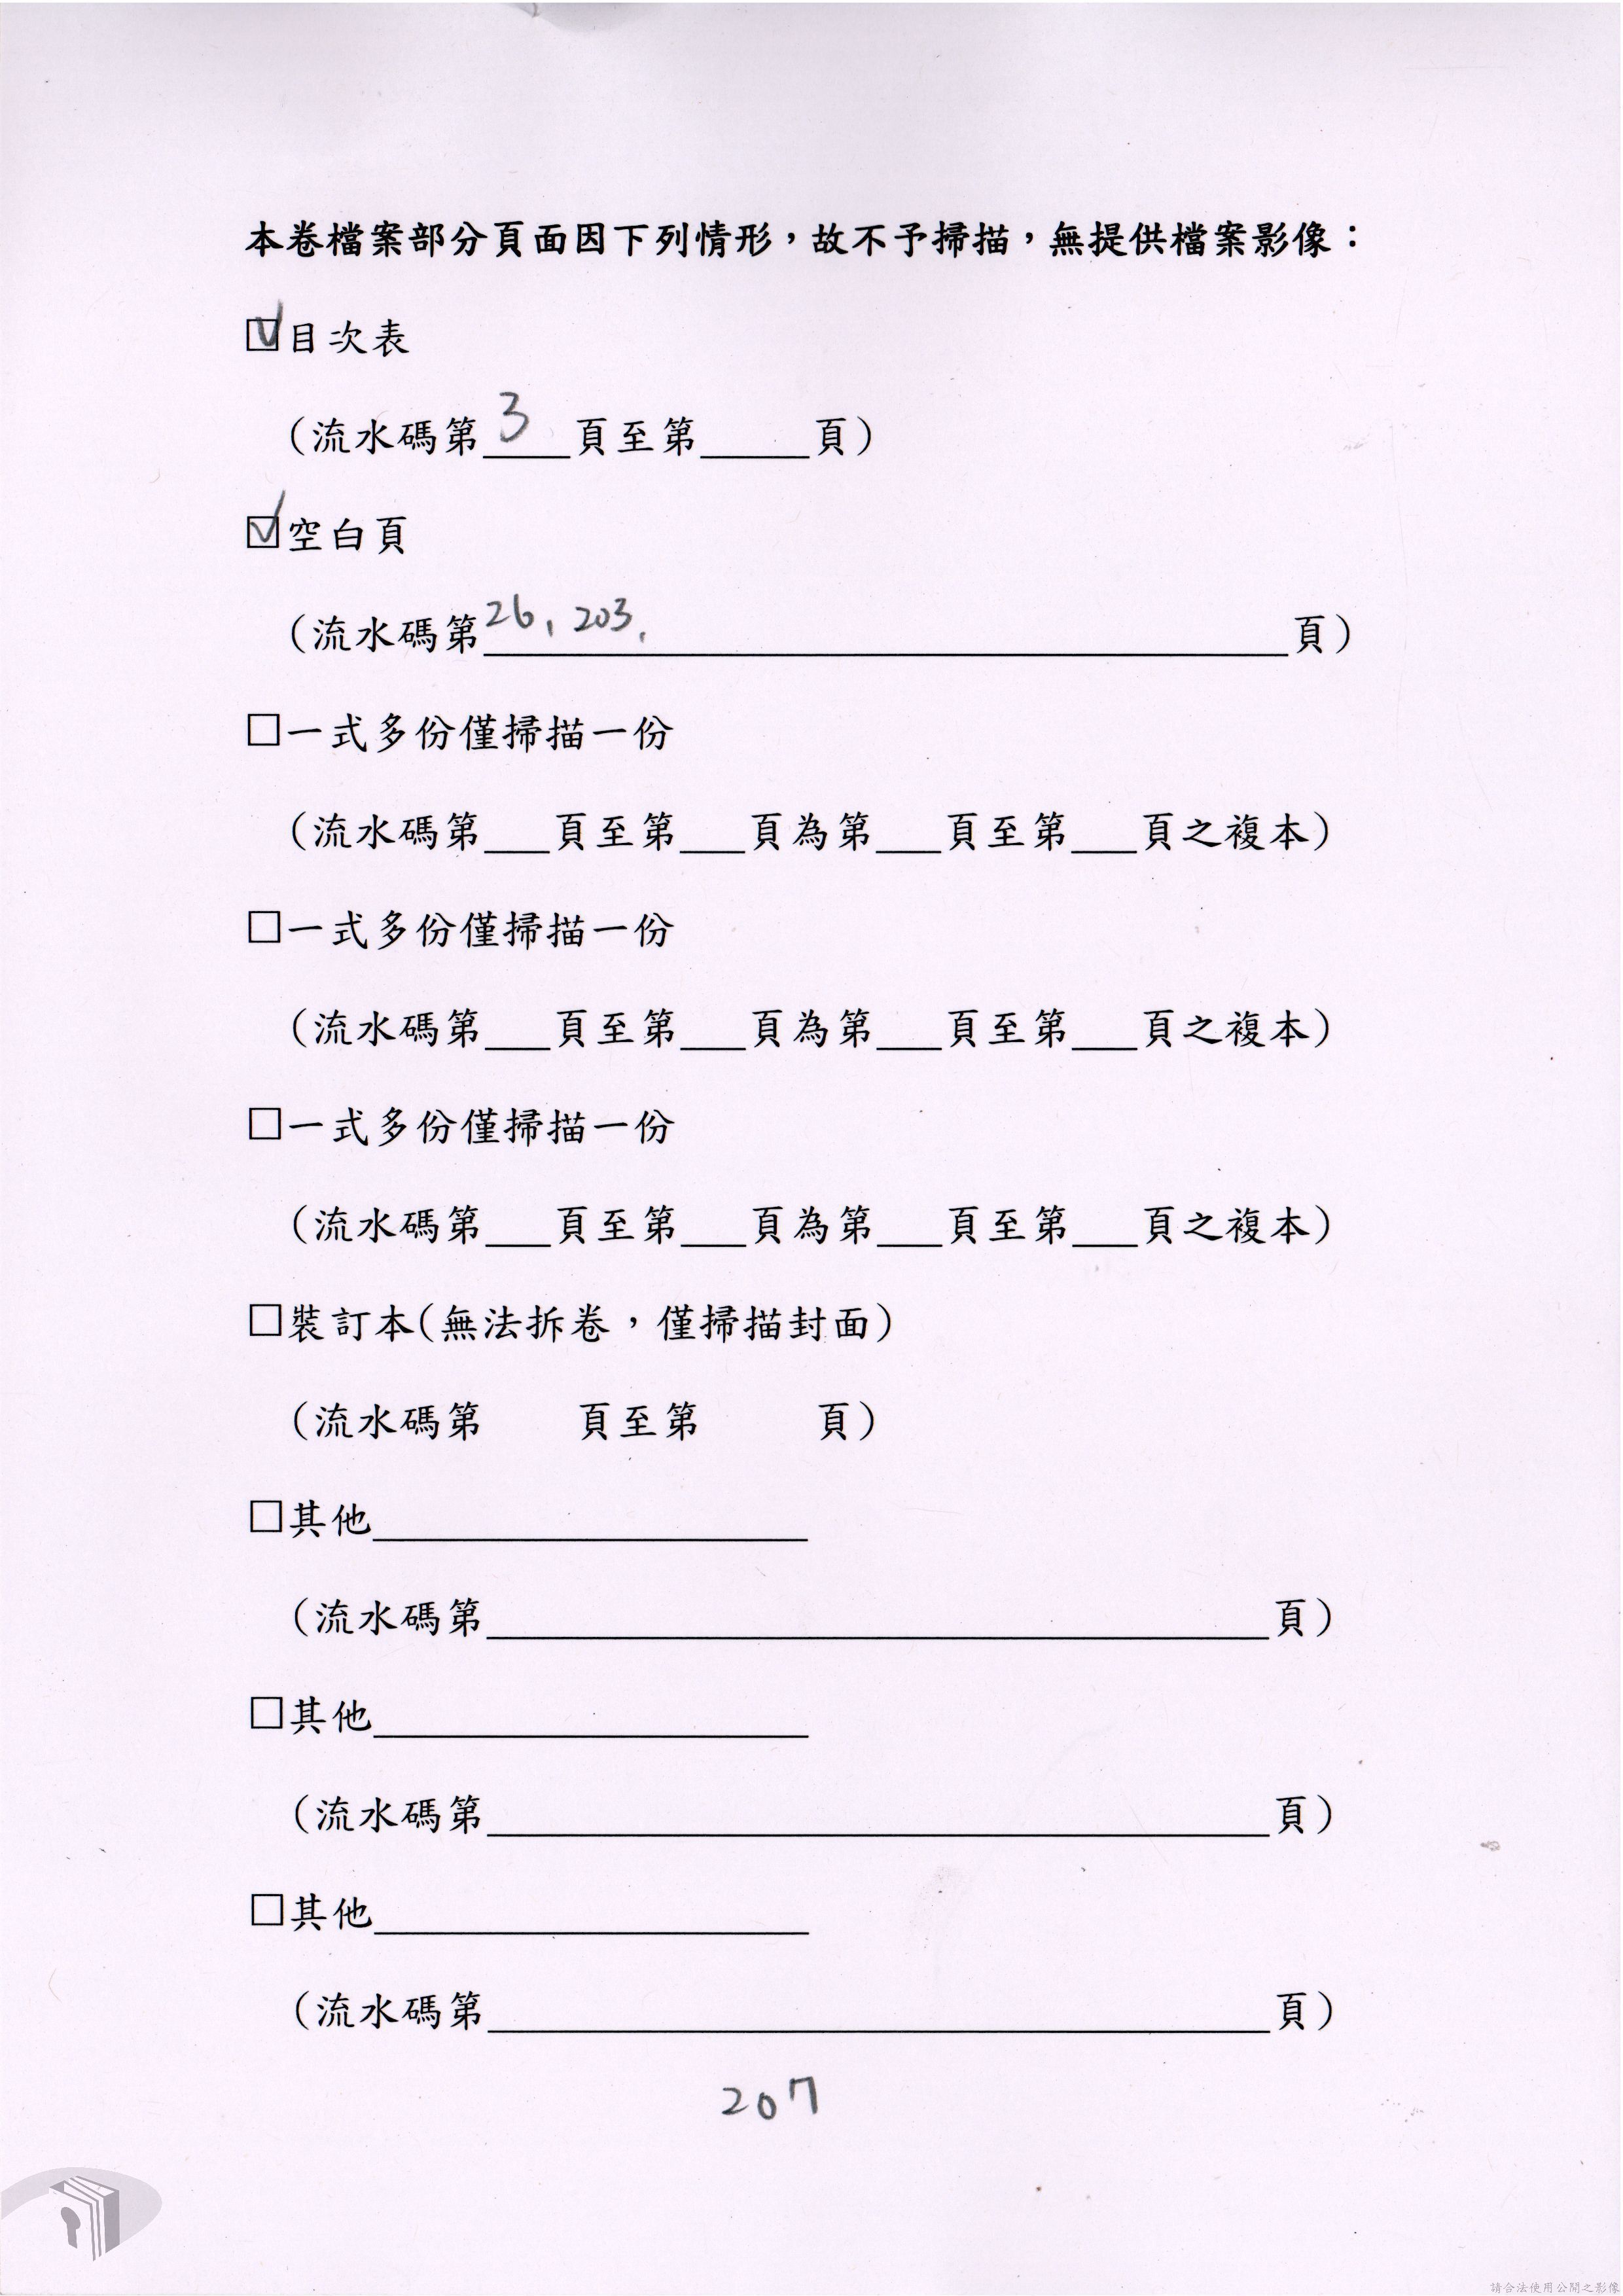 本卷檔案部分頁面因下列情形，故不予掃描，無提供檔案影像：
☑目次表
（流水碼第 3 頁至第____頁）
☑空白頁
（流水碼第26, 203,____頁）
□一式多份僅掃描一份
（流水碼第___頁至第___頁為第___頁至第___頁之複本）
□一式多份僅掃描一份
（流水碼第___頁至第___頁為第___頁至第___頁之複本）
□一式多份僅掃描一份
（流水碼第___頁至第___頁為第___頁至第___頁之複本）
□裝訂本(無法拆卷，僅掃描封面)
（流水碼第　　頁至第　　頁）
□其他____
（流水碼第____頁）
□其他____
（流水碼第____頁）
□其他____
（流水碼第____頁）
207
請合法使用公開之影像